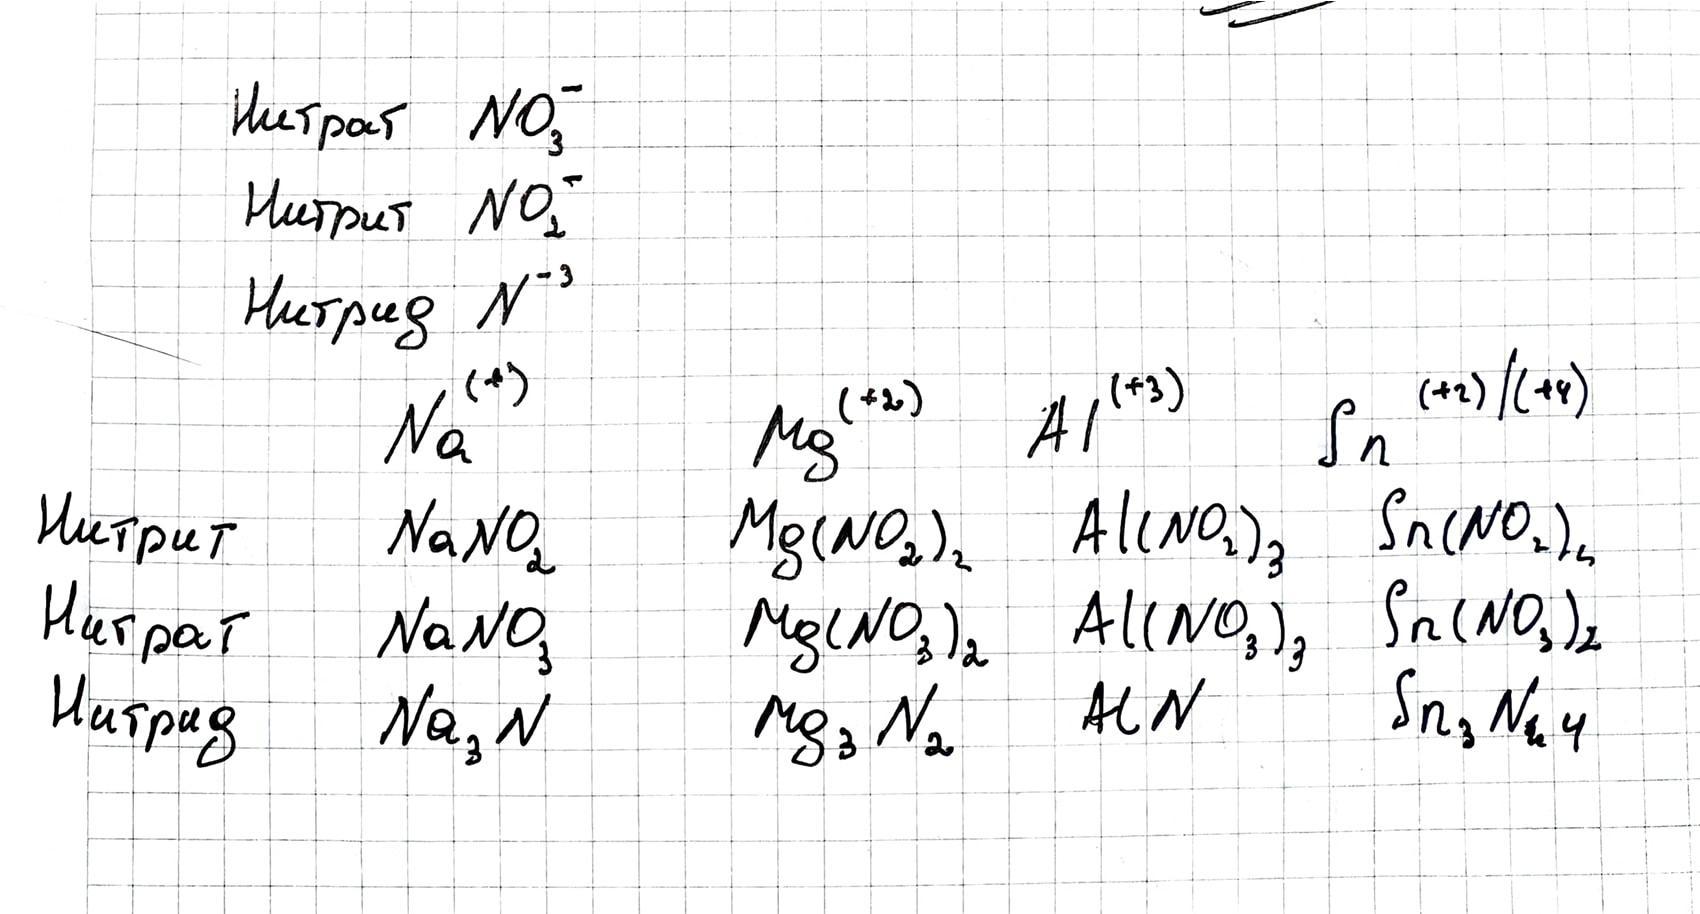 Нитрат NO₃⁻
Нитрит NO₂⁻
Нитрид N⁻³
Na⁽⁺⁾ Mg⁽⁺²⁾ Al⁽⁺³⁾ Sn⁽⁺²⁾/⁽⁺⁴⁾
Нитрит NaNO₂ Mg(NO₂)₂ Al(NO₂)₃ Sn(NO₂)₂
Нитрат NaNO₃ Mg(NO₃)₂ Al(NO₃)₃ Sn(NO₃)₂
Нитрид Na₃N Mg₃N₂ AlN Sn₃N₄